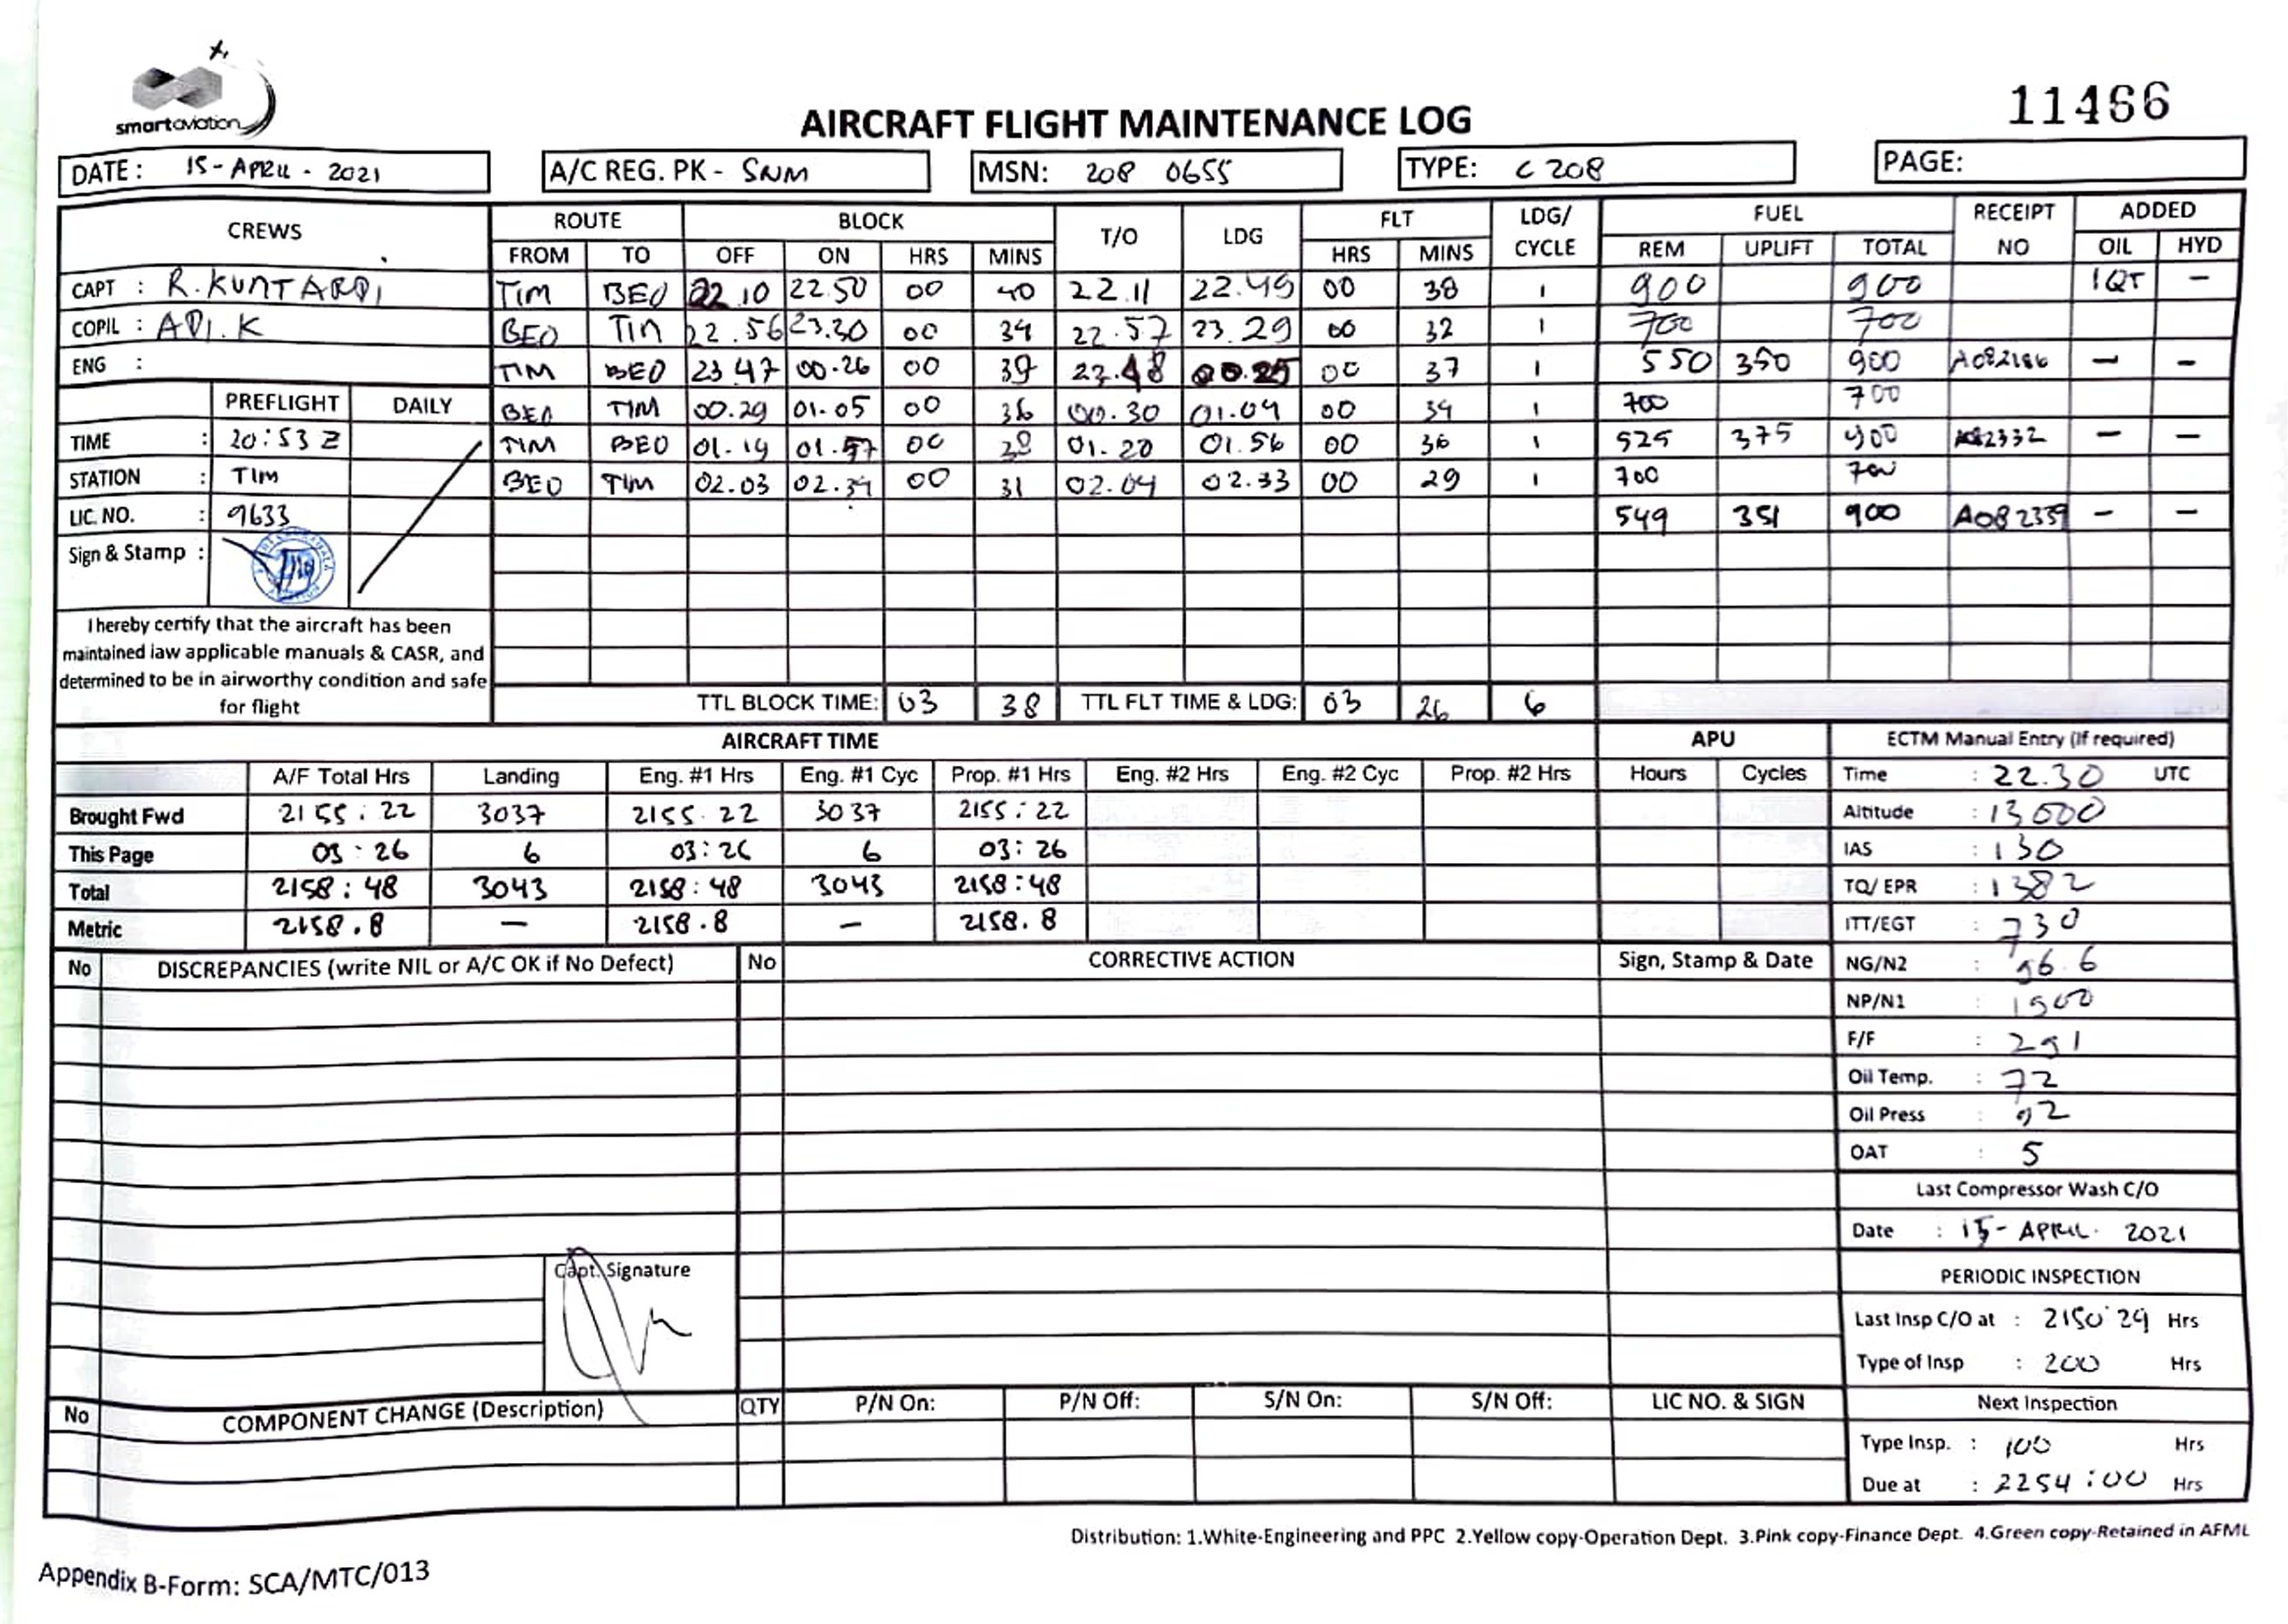 smartaviation
11466
AIRCRAFT FLIGHT MAINTENANCE LOG
DATE: 15-APRIL-2021 A/C REG. PK- SNM MSN: 208 0655 TYPE: C 208 PAGE:
CREWS ROUTE BLOCK T/O LDG FLT LDG/ CYCLE FUEL RECEIPT NO ADDED
FROM TO OFF ON HRS MINS HRS MINS REM UPLIFT TOTAL OIL HYD
CAPT : R.KUNTARDI TIM BEO 22.10 22.50 00 40 22.11 22.49 00 38 1 900 900 1QT –
COPIL : ADI.K BEO TIM 22.56 23.30 00 34 22.57 23.29 00 32 1 700 700
ENG : TIM BEO 23 47 00.26 00 39 23.48 00.25 00 37 1 550 350 900 A082186 – –
PREFLIGHT DAILY BEO TIM 00.29 01.05 00 36 00.30 01.04 00 34 1 700 700
TIME : 20:53 Z TIM BEO 01.19 01.57 00 38 01.20 01.56 00 36 1 525 375 900 A082332 – –
STATION : TIM BEO TIM 02.03 02.34 00 31 02.04 02.33 00 29 1 700 700
LIC. NO. : 9633 549 351 900 A082339 – –
Sign & Stamp :
I hereby certify that the aircraft has been
maintained law applicable manuals & CASR, and
determined to be in airworthy condition and safe
for flight
TTL BLOCK TIME: 03 38 TTL FLT TIME & LDG: 03 26 6
AIRCRAFT TIME APU ECTM Manual Entry (If required)
A/F Total Hrs Landing Eng. #1 Hrs Eng. #1 Cyc Prop. #1 Hrs Eng. #2 Hrs Eng. #2 Cyc Prop. #2 Hrs Hours Cycles Time : 22.30 UTC
Brought Fwd 2155:22 3037 2155.22 3037 2155:22 Altitude : 13000
This Page 03:26 6 03:26 6 03:26 IAS : 130
Total 2158:48 3043 2158:48 3043 2158:48 TQ/ EPR : 1382
Metric 2158.8 – 2158.8 – 2158.8 ITT/EGT : 730
No DISCREPANCIES (write NIL or A/C OK if No Defect) No CORRECTIVE ACTION Sign, Stamp & Date NG/N2 : 96.6
NP/N1 : 1900
F/F : 291
Oil Temp. : 72
Oil Press : 92
OAT : 5
Last Compressor Wash C/O
Date : 15-APRIL. 2021
Capt. Signature
PERIODIC INSPECTION
Last Insp C/O at : 2150:29 Hrs
Type of Insp : 200 Hrs
No COMPONENT CHANGE (Description) QTY P/N On: P/N Off: S/N On: S/N Off: LIC NO. & SIGN Next Inspection
Type Insp. : 100 Hrs
Due at : 2254:00 Hrs
Distribution: 1.White-Engineering and PPC 2.Yellow copy-Operation Dept. 3.Pink copy-Finance Dept. 4.Green copy-Retained in AFML
Appendix B-Form: SCA/MTC/013